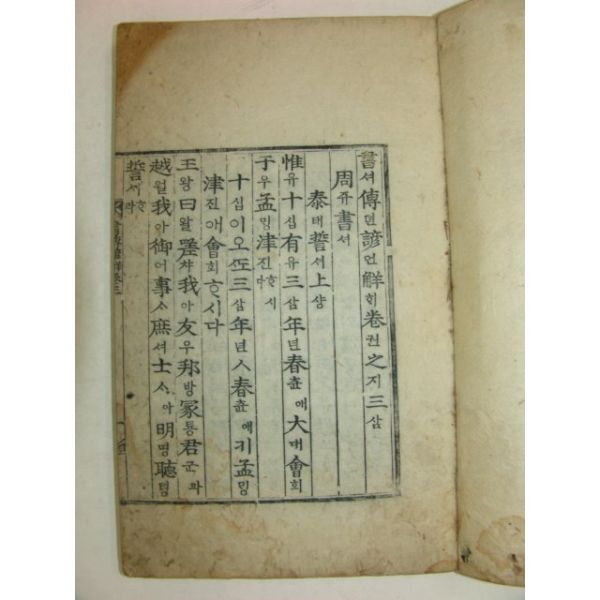 書셔傳뎐諺언觧ᄒᆡ卷권之지三삼
周쥬書셔
泰태誓셔上샹
惟유十십有유三삼年년春츈애大대會회
于우孟ᄆᆡᆼ津진ᄒᆞ시라
十십이오ᄯᅩ三삼年년ㅅ春츈애키孟ᄆᆡᆼ
津진애會회ᄒᆞ시다
王왕曰왈嗟차我아友우邦방冢통君군과
越월我아御어事ᄉᆞ庶셔士ᄉᆞ아明명聽텽
誓셔ᄒᆞ라
書傳諺觧卷三